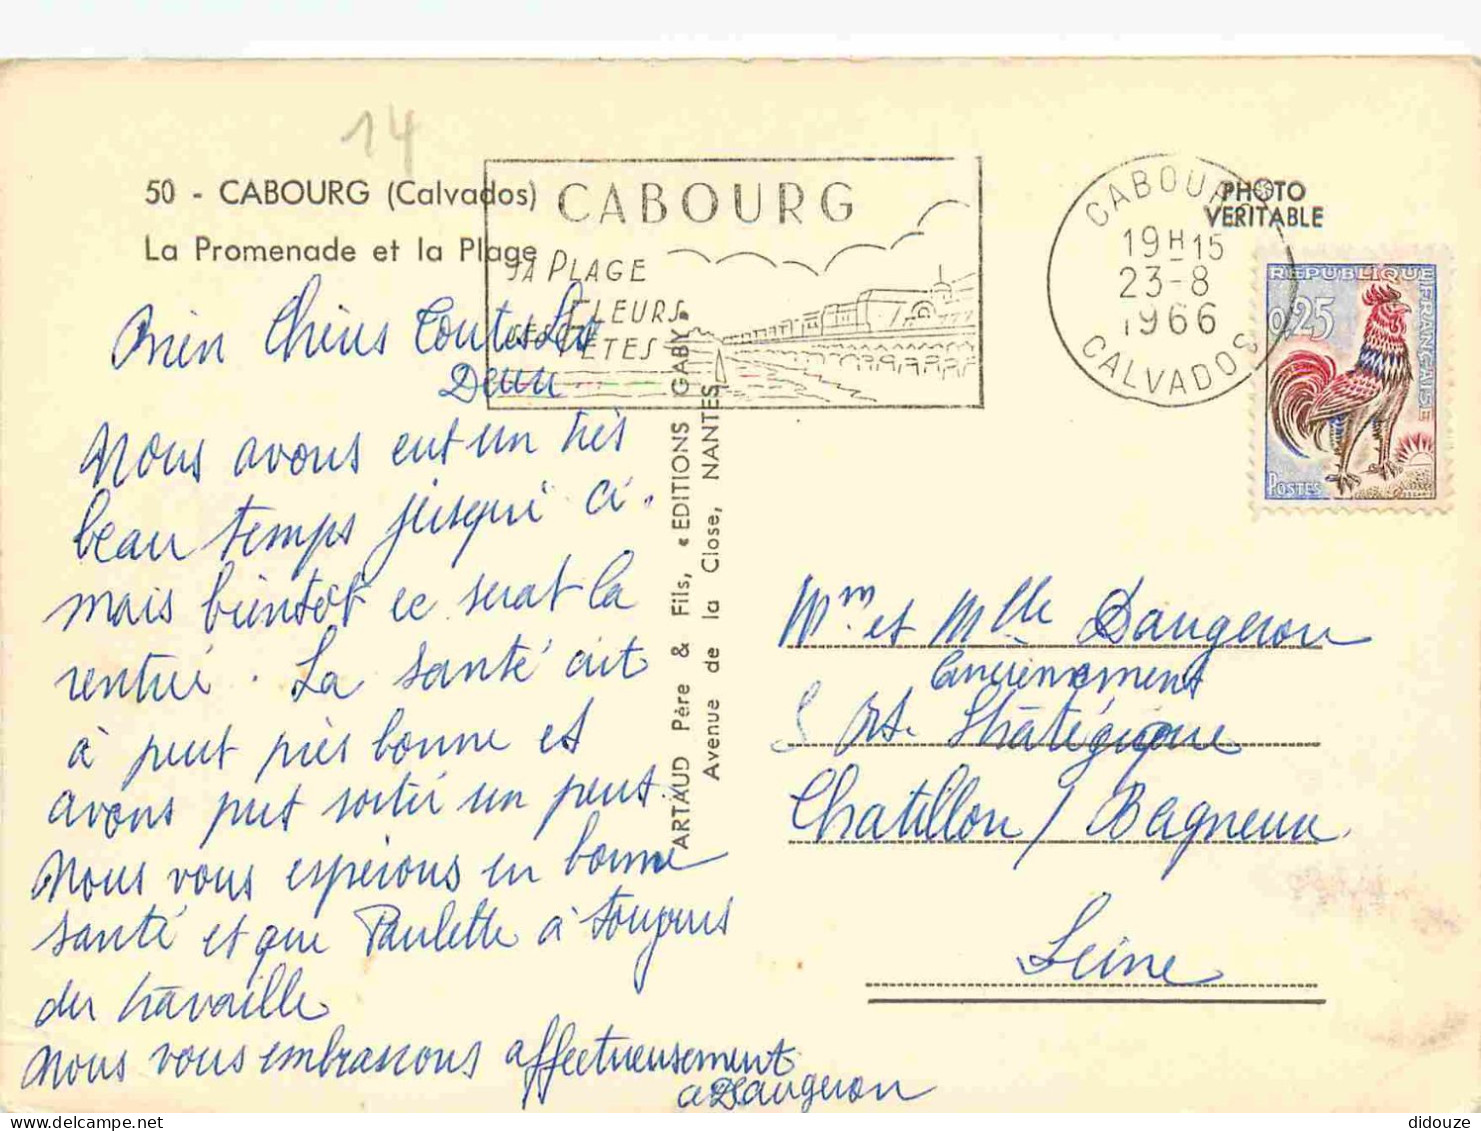 14
50 - CABOURG (Calvados)
La Promenade et la Plage
CABOURG
SA PLAGE
FLEURS
SES FÊTES
CABOURG
19H15
23-8
1966
CALVADOS
PHOTO
VERITABLE
REPUBLIQUE FRANÇAISE
0,25
POSTES
Bien Chères Toutes Les
Deux
Nous avons eut un très
beau temps jusqui ci.
mais bientôt ce serat la
rentré. La santé ait
à peut près bonne et
avons put sortir un peut.
Nous vous espérions en bonne
santé et que Paulette à tougours
du travaille
Nous vous embrassons affectueusement
a Daugeron
ARTAUD Père & Fils, « EDITIONS GABY »
Avenue de la Close, NANTES
Mm et Mlle Daugeron
5 Rt. Stratégique
Chatillon / Bagneux
Seine
didouze
delcampe.net